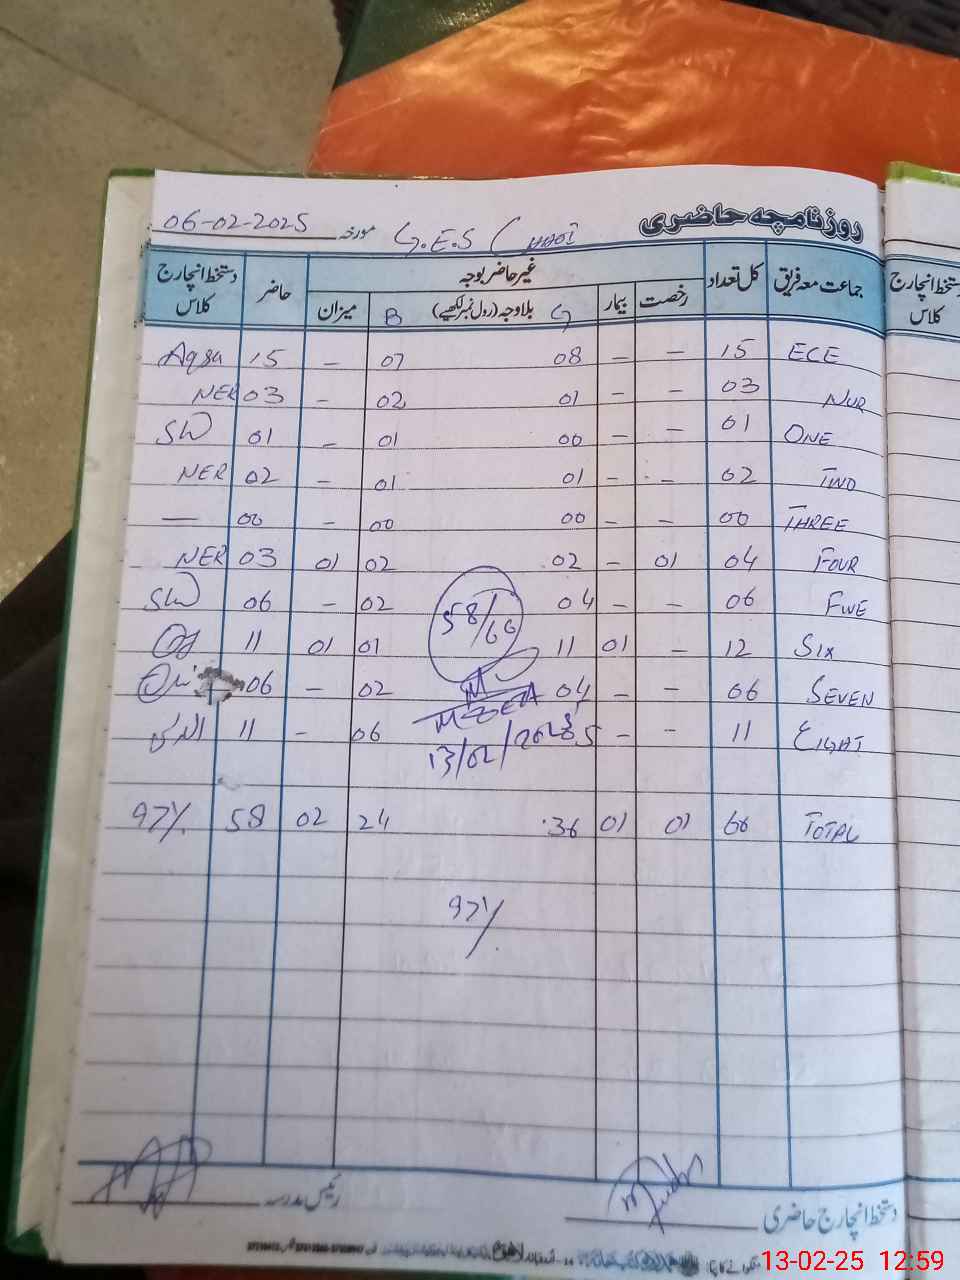 روزنامچہ حاضری
G.E.S ( مورخہ 06-02-2025
جماعت معہ فریق کل تعداد غیر حاضر بوجہ حاضر دستخط انچارج کلاس
رخصت بیمار بلاوجہ (رول نمبر لکھیے) میزان
G B
ECE 15 – – 08 07 – 15 Aqsa
NUR 03 – – 01 02 – 03 NER
ONE 01 – – 00 01 – 01 SW
TWO 02 – – 01 01 – 02 NER
THREE 00 – – 00 00 – 00 —
FOUR 04 01 – 02 02 01 03 NER
FIVE 06 – – 04 02 – 06 SW
SIX 12 – 01 11 01 01 11
SEVEN 06 – – 04 02 – 06
EIGHT 11 – – 5 06 – 11
58/60
13/02/2025
TOTAL 60 01 01 36 24 02 58 97%
97%
دستخط انچارج حاضری
رئیس مدرسہ
دستخط انچارج
کلاس
13-02-25 12:59